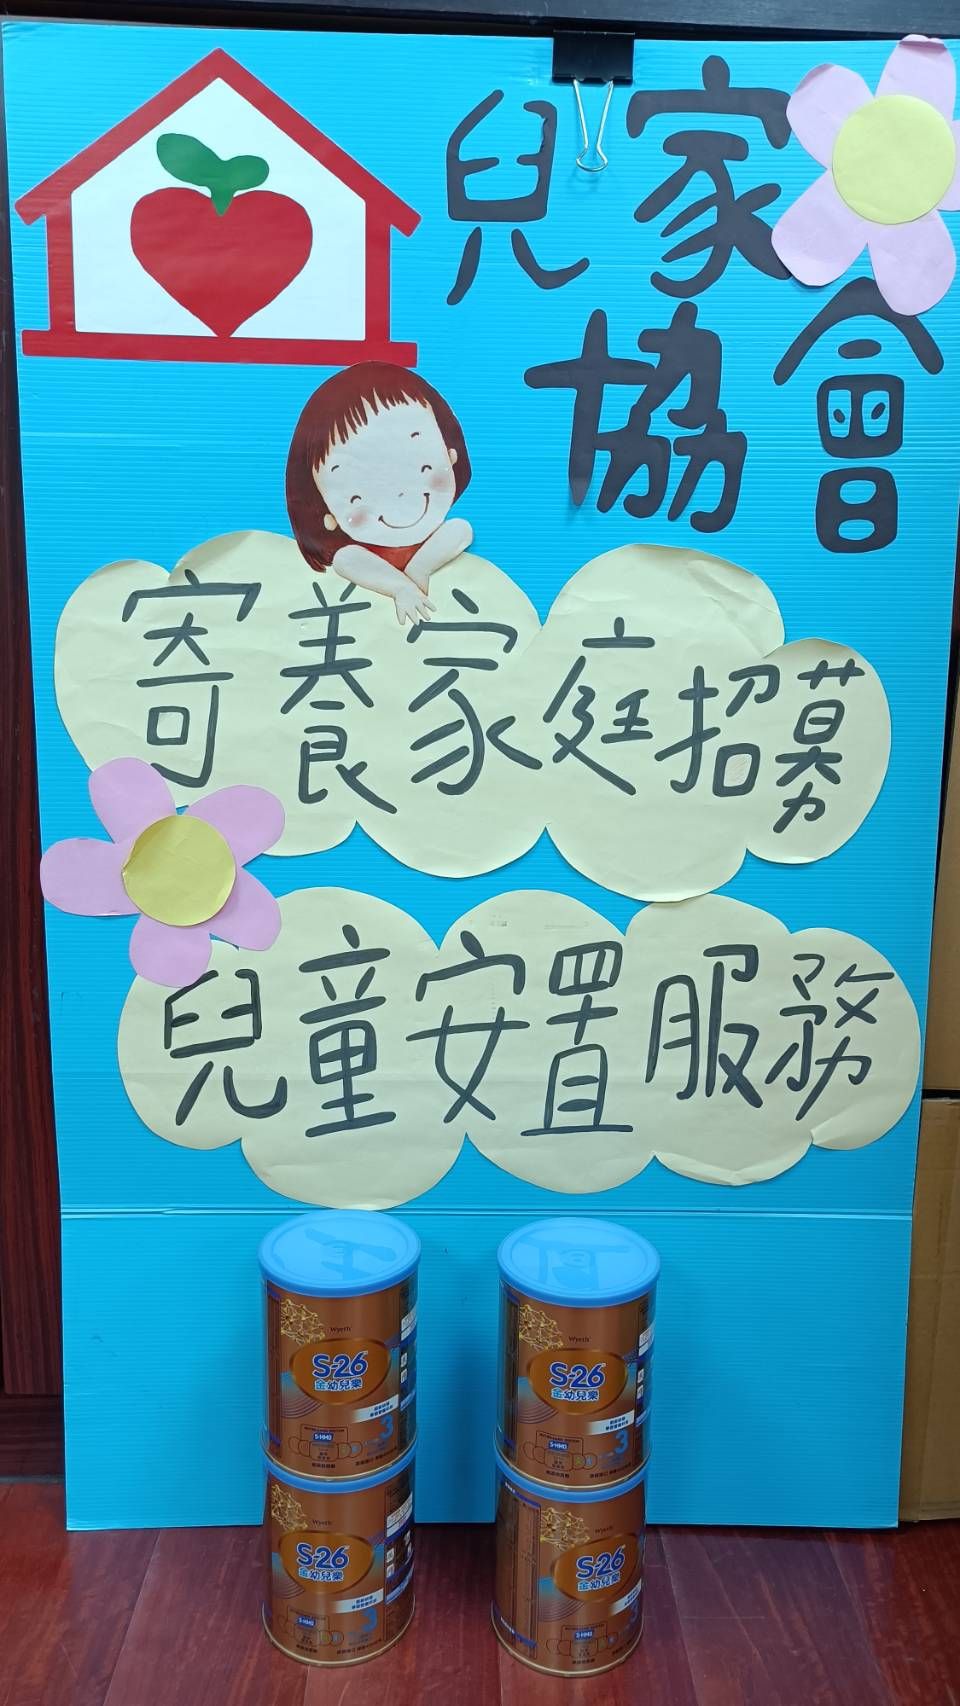 兒家
協會
寄養家庭招募
兒童安置服務
Wyeth
S-26
金幼兒樂
S-HMO
3
Wyeth
S-26
金幼兒樂
S-HMO
3
Wyeth
S-26
金幼兒樂
S-HMO
3
Wyeth
S-26
金幼兒樂
S-HMO
3